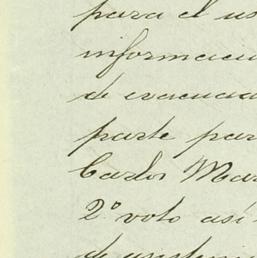 para el us
informacion
de evacuad
parte par
Carlos Mar
2º voto así
de